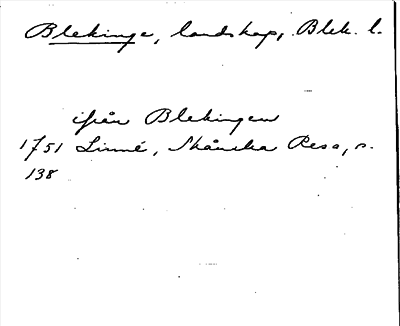 Blekinge, landskap, Blek. l.
ifrån Blekingen
1751 Linné, Skånska Resa, s.
138